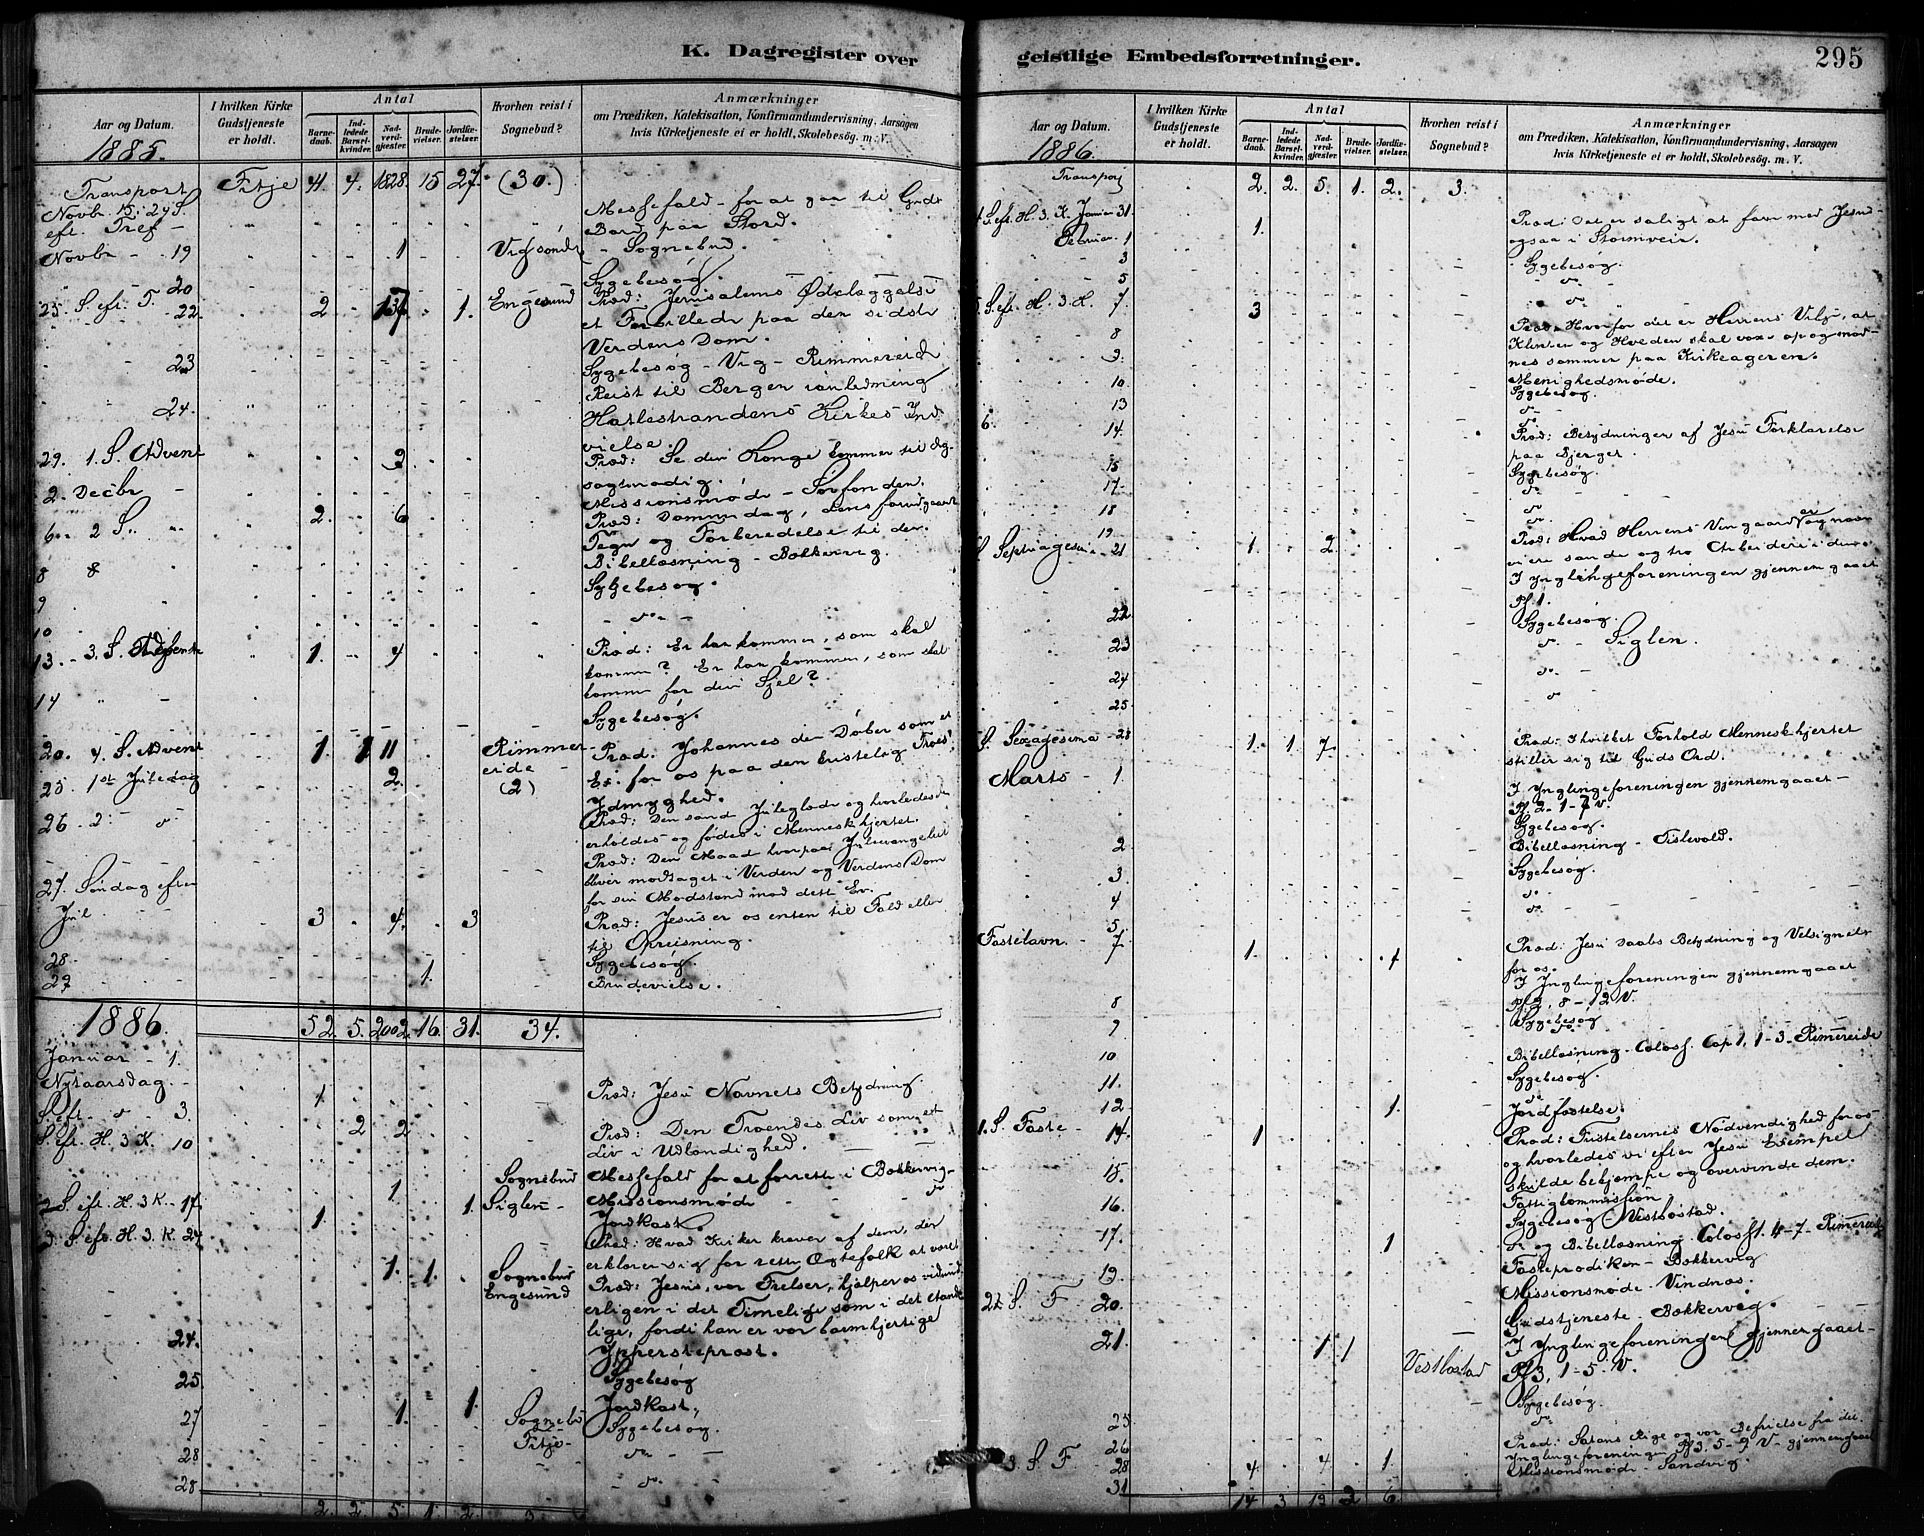 K. Dagregister over geistlige Embedsforretninger.
295
Aar og Datum.
1885.
I hvilken Kirke Gudstjeneste er holdt.
Antal
Barnedaab.
Indledede Barselkvinder.
Nadverdgjæster.
Brudevielser.
Jordfæstelser.
Hvorhen reist i Sognebud?
Anmærkninger
om Prædiken, Katekisation, Konfirmandundervisning, Aarsagen
hvis Kirketjeneste ei er holdt, Skolebesøg. m. V.
Transport Fitje 44. 4. 1828. 15 27. (30.)
Novbr 15. 24 S. Messefald - for at gaa til Guds
eft. Tref - Bord paa Stord.
Novbr - 19 1 - Sognebud.
20 Sygebesøg
25. S. eft. T. - 22. 2 137 1. Engesund Præd: Jerusalems Ødelæggelse
et Forbillede paa den sidste
Verdens Dom.
23 Sygebesøg - Vig - Rimmereid
24. Reist til Bergen i anledning
Hatlestrandens Kirkes Ind
vielse.
29. 1. S. Advent 9 Præd: Se din Konge kommer til dig
sagtmodig.
2. Decbr - Missionsmøde -
6. 2 S. " 2. 6 Præd: Dommedag, dens forudgaaende
Tegn og Forberedelse til den.
8 Bibellæsning - Bækkervig.
9 Sygebesøg.
10 - do -
13. - 3. S. Advent 1. 4 Præd: Er han kommen, som skal
komme? Er han kommen, som skal
komme for din Sjel?
14 " - Sygebesøg.
20. 4. S. Advent 1. 1 11 Rimmereide (2) Præd. Johannes den Døber som et
Ex. for os paa den kristelig Troes
Ydmyghed.
25. 1st Juledag 2. Præd: Den sand Juleglæde og hvorledes den
erholdes og fødes i Menneskehjertet.
26. 2. do Præd: Den Maade hvorpaa Juleevangeliet
bliver modtaget i Verden og Verdens Dom
for sin Modstand mod dette Ev.
27. Søndag efter
Jul 3 4. 3 Præd: Jesus er os enten til Fald eller
til Opreisning.
28. Sygebesøg
29 1. Brudevielse.
1886. 52. 5. 2002. 16. 31. 34.
Januar - 1.
Nytaarsdag. 1 Præd: Jesu Navnets Betydning.
S. eft. do 3 2 2 Præd: Den Troendes Liv som et
Liv i Udlændighed.
S. eft. H. 3 K. 10 Sognebud Messefald for at forrette i Bækkervig
1 Siglen - Missionsmøde - do
2 S. eft. H. 3 K - 17. 1. 1. Jordkast.
3. S. eft. H. 3. K. 24 Præd: Hvad Kirken kræver af dem, der
erklærer sig for rette Ægtefolk at være
1. 1. Sognebud Engesund Præd: Jesus, vor Frelser, hjælper os vidunderligen
i det Timelige som i det aandelige,
fordi han er vor barmhjertige
24. Ypperstepræst.
25 Sygebesøg
1. Jordkast,
27 1. Sognebud Fitje - Sygebesøg.
28 - do -
28. - do -
2 2. 5 1. 2. 5.
Aar og Datum.
1886.
I hvilken Kirke Gudstjeneste er holdt.
Antal
Barnedaab.
Indledede Barselkvinder.
Nadverdgjæster.
Brudevielser.
Jordfæstelser.
Hvorhen reist i Sognebud?
Anmærkninger
om Prædiken, Katekisation, Konfirmandundervisning, Aarsagen
hvis Kirketjeneste ei er holdt, Skolebesøg. m. V.
Transport 2. 2. 5. 1. 2. 3.
4. S. eft. H. 3. K. Januar 31 1. Præd: Det er saligt at fare med Jesus
ogsaa i Stormveir.
Februar. 1 Sygebesøg.
3 - do -
5 do
5. S. eft. H. 3. K. 7 3 Præd: Hvorfor det er Herrens Vilje, at
Klinten og Hveden skal voxe op og modnes
sammen paa Kirkeageren.
8 Menighedsmøde.
9. Sygebesøg
10 do -
13 do
6. 14. Præd: Betydningen af Jesu Forklarelse
paa Bjerget.
15 Sygebesøg
17. do
18 do
19 do
S. Septuagesima - 21 1. 2 Præd: Hvad Herrens Vingaard er og naar
vi ere sande og tro Arbeidere i den.
I Ynglingeforeningen gjennemgaaet
Ps. 1.
22 Sygebesøg.
23 do - Siglen.
24 do -
25. do
S. Sexagesima - 28 1. 1 7. Præd: I hvilket Forhold Menneskehjertet
stiller sig til Guds Ord.
Marts - 1. I Ynglingeforeningen gjennemgaaet -
Ps. 2. 1 - 7 V.
Sygebesøg.
2 Bibellæsning -
3. Sygebesøg.
4 do -
5 do
Fastelavn - 7. 1. 1 Præd: Jesu Daabs Betydning og Velsignelse
for os.
I Ynglingeforeningen gjennemgaaet
Ps. 2, 8 - 12 V.
8 Sygebesøg
9 do
10 Bibellæsning - Coloss. Cap 1, 1 - 3 - Rimereide
11. Sygebesøg.
do
12 1. Jordfæstelse.
1. S. Faste - 14. 1 Præd: Fristelsernes Nødvendighed for os
og hvorledes vi efter Jesu Exempel
skulde bekjæmpe og overvinde dem.
15. Fattigkommission,
16. Sygebesøg Vestbostad.
17. 1 do og Bibellæsning Coloss 1. 4 - 7 - Rimereide
Fasteprædiken - Bækkervig
19. Missionsmøde - Vindnæs.
2 S. F 20. Gudstjeneste - Bækkervig.
21. 1 1 Vestbostad I Ynglingeforeningen gjennemgaaet -
Ps 3, 1 - 5. V.
Sygebesøg.
25 do
26
3. S. F - 28 4 4 1 Præd: Satans Rige og vor Befrielse fra det.
Ynglingeforeningen Ps 3. 5 - 9 V - gjennemgaaet
31 Missionsmøde - Sandvig.
14 3 19 2 6.